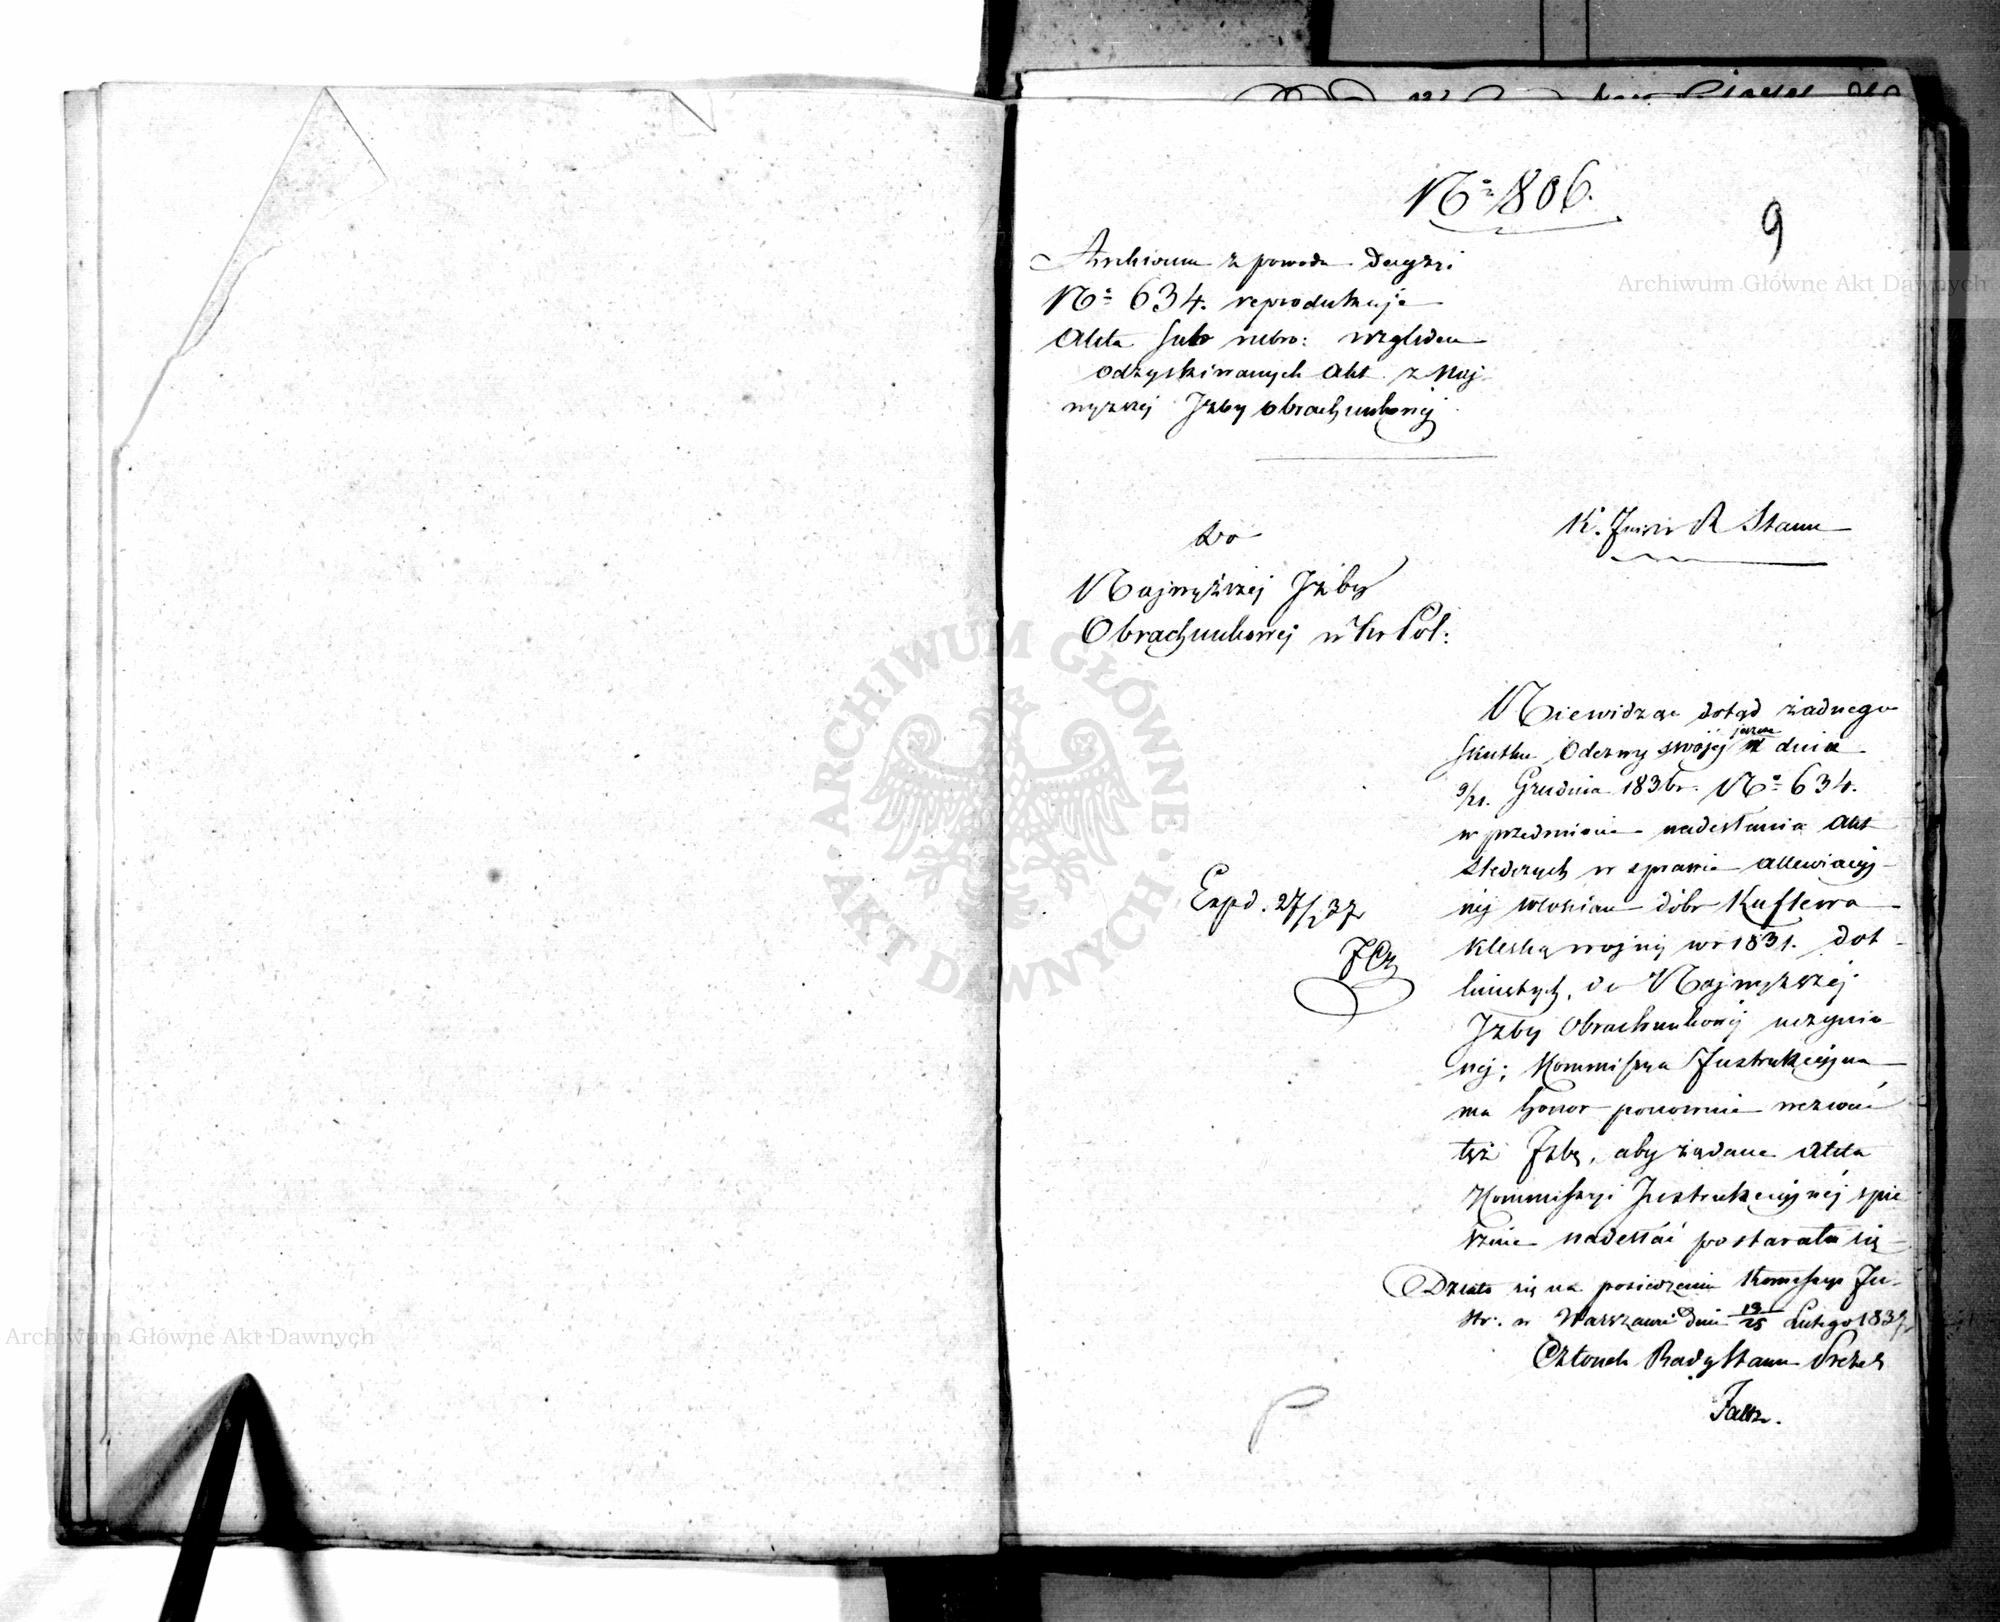 No 806.
9
Archiwum z powodu Decyzyi
No 634. reprodukuje
Akta sub rubro: względem
odzyskiwanych Akt z Naj-
wyższej Izby obrachunkowej
K. Instr R Stanu
Do
Najwyższej Izby
Obrachunkowej w Kr Pol:
Niewidząc dotąd żadnego
skutku Odezwy swojej z dnia
9/21. Grudnia 1836 r. No 634.
w przedmiocie nadesłania Akt
śledczych w sprawie allewiacyj-
nej włościan dóbr Kuflewa
klęską wojny w r 1831. dot-
kniętych, do Najwyższej
Izby Obrachunkowej uczynio-
nej; Kommissya Instrukcyjna
ma honor ponownie wezwać
też Izbę, aby żądane Akta
Kommissyi Instrukcyjnej spie-
sznie nadesłać postarała się
Expd. 27/2 37
Działo się na posiedzeniu Kommissyi In-
str: w Warszawie dnia 13/25 Lutego 1837 r
Członek Rady Stanu Prezes
Faltz.
ARCHIWUM GŁÓWNE
AKT DAWNYCH
Archiwum Główne Akt Dawnych
Archiwum Główne Akt Dawnych